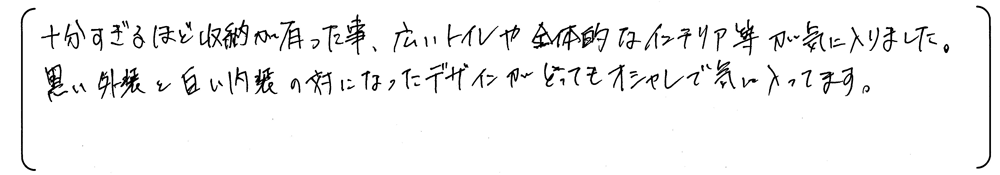 十分すぎるほど収納が有った事、広いトイレや全体的なインテリア等が気に入りました。
黒い外装と白い内装の対になったデザインがとってもオシャレで気に入ってます。